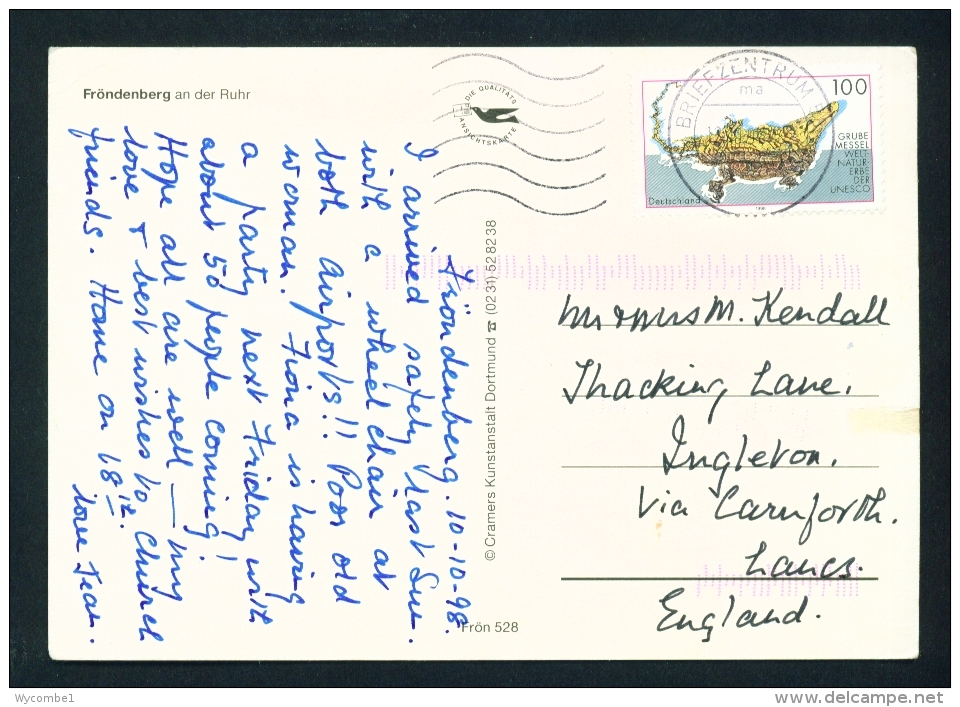 Fröndenberg an der Ruhr
DIE QUALITÄTS
ANSICHTSKARTE
BRIEFZENTRUM
ma
100
GRUBE
MESSEL
WELT-
NATUR-
ERBE
DER
UNESCO
Deutschland
Fröndenberg. 10-10-98.
I arrived safely last Sun.
with a wheelchair at
both airports!! Poor old
woman. Fiona is having
a party next Friday with
about 50 people coming!
Hope all are well — my
love & best wishes to Church
friends. Home on 18th.
love Jean.
© Cramers Kunstanstalt Dortmund ☎ (02 31) 52 82 38
Frön 528
Mr & Mrs M. Kendall
Thacking Lane.
Ingleton.
Via Carnforth.
Lancs.
England.
Wycombe1
www.delcampe.net